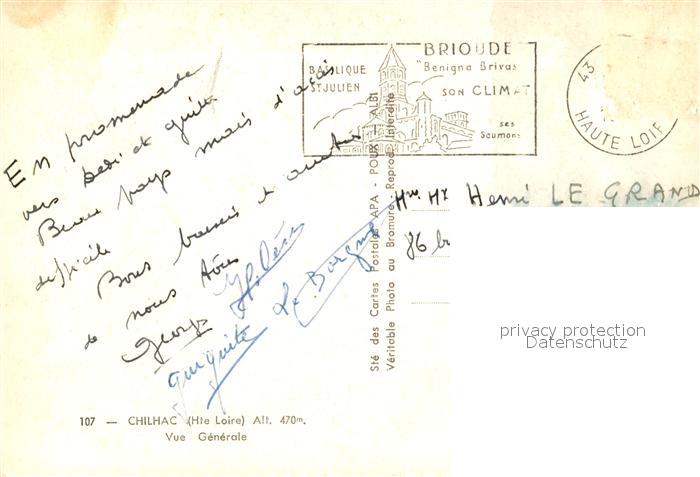 En promenade
vers Dédé et guite
Beau pays mais d'accès
difficile
Bons baisers à
de nous tous
George
guiguite Le Borgne
107 — CHILHAC (Hte Loire) Alt. 470m.
Vue Générale
Sté des Cartes Postales APA - POUX - ALBI
Véritable Photo au Bromure. Reprod. Interdite
BRIOUDE
"Benigna Brivas
BASILIQUE
ST JULIEN
SON CLIMAT
ses
Saumons
43
HAUTE LOIRE
Henri LE GRAND
86 b
privacy protection
Datenschutz